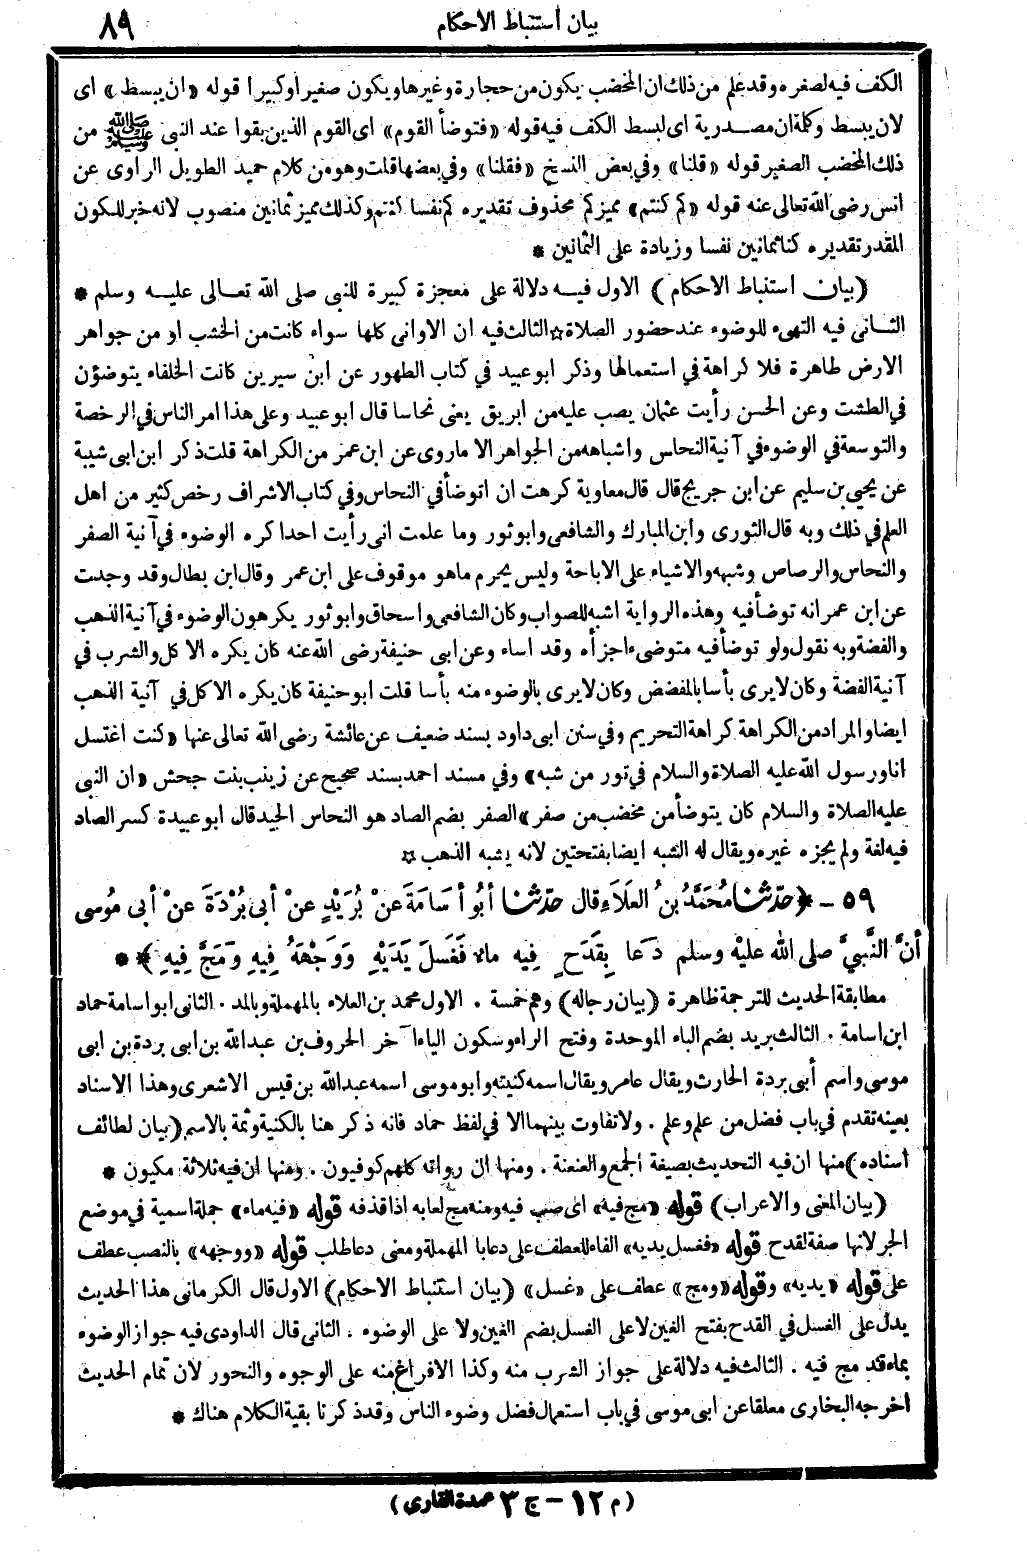 بيان أستنباط الاحكام ٨٩
الكف فيه لصغره وقد علم من ذلك ان المخضب يكون من حجارة وغيرها ويكون صغيرا وكبيرا قوله «ان يبسط» اى
لان يبسط وكلمة ان مصدرية اى لبسط الكف فيه قوله «فتوضأ القوم» اى القوم الذين بقوا عند النبى ﷺ من
ذلك المخضب الصغير قوله «قلنا» وفي بعض النسخ «فقلنا» وفي بعضها قلت وهو من كلام حميد الطويل الراوى عن
انس رضى الله تعالى عنه قوله «كم كنتم» مميز كم محذوف تقديره كم نفسا كنتم وكذلك مميز ثمانين منصوب لانه خبر للكون
المقدر تقديره كنا ثمانين نفسا وزيادة على الثمانين *
(بيان استنباط الاحكام) الاول فيه دلالة على معجزة كبيرة للنبى صلى الله تعالى عليه وسلم *
الثانى فيه التهىء للوضوء عند حضور الصلاة ☆ الثالث فيه ان الاوانى كلها سواء كانت من الخشب او من جواهر
الارض طاهرة فلا كراهة في استعمالها وذكر ابو عبيد في كتاب الطهور عن ابن سيرين كانت الخلفاء يتوضؤن
في الطشت وعن الحسن رأيت عثمان يصب عليه من ابريق يعنى نحاسا قال ابو عبيد وعلى هذا امر الناس في الرخصة
والتوسعة في الوضوء في آنية النحاس واشباهه من الجواهر الا ما روى عن ابن عمر من الكراهة قلت ذكر ابن ابى شيبة
عن يحيى بن سليم عن ابن جريج قال قال معاوية كرهت ان اتوضأ في النحاس وفي كتاب الاشراف رخص كثير من اهل
العلم في ذلك وبه قال الثورى وابن المبارك والشافعى وابو ثور وما علمت انى رأيت احدا كره الوضوء في آنية الصفر
والنحاس والرصاص وشبهه والاشياء على الاباحة وليس يحرم ما هو موقوف على ابن عمر وقال ابن بطال وقد وجدت
عن ابن عمر انه توضأ فيه وهذه الرواية اشبه للصواب وكان الشافعى واسحاق وابو ثور يكرهون الوضوء في آنية الذهب
والفضة وبه نقول ولو توضأ فيه متوضىء اجزأه وقد اساء وعن ابى حنيفة رضى الله عنه كان يكره الاكل والشرب في
آنية الفضة وكان لا يرى بأسا بالمفضض وكان لا يرى بالوضوء منه بأسا قلت ابو حنيفة كان يكره الاكل في آنية الذهب
ايضا والمراد من الكراهة كراهة التحريم وفي سنن ابى داود بسند ضعيف عن عائشة رضى الله تعالى عنها «كنت اغتسل
انا ورسول الله عليه الصلاة والسلام في تور من شبه» وفي مسند احمد بسند صحيح عن زينب بنت جحش «ان النبى
عليه الصلاة والسلام كان يتوضأ من مخضب من صفر» الصفر بضم الصاد هو النحاس الجيد قال ابو عبيدة كسر الصاد
فيه لغة ولم يجزه غيره ويقال له الشبه ايضا بفتحتين لانه يشبه الذهب ☆
٥٩ - ﴿حدّثنا مُحَمَّدُ بنُ العَلَاءِ قال حدّثنا أبُو أُسَامَةَ عنْ بُرَيْدٍ عنْ أبى بُرْدَةَ عنْ أبى مُوسى
أنَّ النَّبِيَّ صلى الله عليْه وسلم دَعَا بِقَدَحٍ فِيهِ ماءٌ فَغَسَلَ يَدَيْهِ وَوَجْهَهُ فِيهِ وَمَجَّ فِيهِ﴾ *
مطابقة الحديث للترجمة ظاهرة (بيان رجاله) وهم خمسة . الاول محمد بن العلاء بالمهملة وبالمد . الثانى ابو اسامة حماد
ابن اسامة . الثالث بريد بضم الباء الموحدة وفتح الراء وسكون الياء آخر الحروف بن عبدالله بن ابى بردة بن ابى
موسى واسم أبى بردة الحارث ويقال عامر ويقال اسمه كنيته وابو موسى اسمه عبدالله بن قيس الاشعرى وهذا الاسناد
بعينه تقدم في باب فضل من علم وعلم . ولا تفاوت بينهما الا في لفظ حماد فانه ذكر هنا بالكنية وثمة بالاسم (بيان لطائف
أسناده) منها ان فيه التحديث بصيغة الجمع والعنعنة . ومنها ان رواته كلهم كوفيون . ومنها ان فيه ثلاثة مكيون *
(بيان المعنى والاعراب) قوله «مج فيه» اى صب فيه ومنه مج لعابه اذا قذفه قوله «فيه ماء» جملة اسمية في موضع
الجر لانها صفة لقدح قوله «فغسل يديه» الفاء للعطف على دعا بالمهملة ومعنى دعا طلب قوله «ووجهه» بالنصب عطف
على قوله «يديه» وقوله «ومج» عطف على «غسل» (بيان استنباط الاحكام) الاول قال الكرمانى هذا الحديث
يدل على الغسل في القدح بفتح الغين لا على الغسل بضم الغين ولا على الوضوء . الثانى قال الداودى فيه جواز الوضوء
بماء قد مج فيه . الثالث فيه دلالة على جواز الشرب منه وكذا الافراغ منه على الوجوه والنحور لان تمام الحديث
أخرجه البخارى معلقا عن ابى موسى في باب استعمال فضل وضوء الناس وقد ذكرنا بقية الكلام هناك *
(م ١٢ - ج ٣ عمدة القارى)